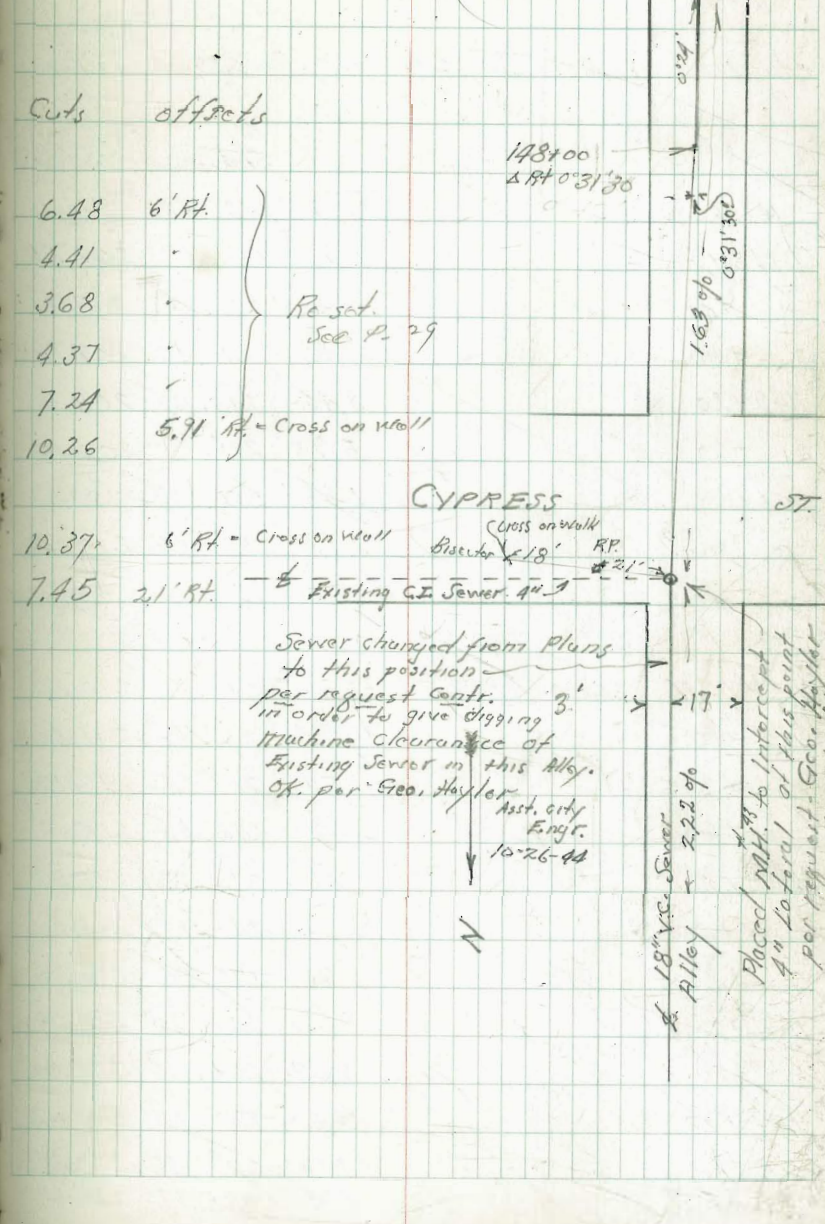 Cuts offsets
6.48 6' Rt.
4.41 "
3.68 "
4.37 "
7.24 "
10.26 5.91' Rt. = Cross on wall
Re set.
See P- 29
10.37 6' Rt = Cross on wall
7.45 21' Rt.
148+00
Δ Rt 0°31'30
0'24'
0°31'30"
1.63 %
CYPRESS ST.
Cross on walk
Bisector 18' R.P.
21'
Existing C.I. Sewer 4"
Sewer changed from Plans
to this position
per request Contr.
in order to give digging
machine clearance of
Existing Sewer in this Alley.
OK. per Geo. Hayler
Asst. City
Engr.
10-26-44
3'
17'
N
18" V.C. Sewer
Alley 2.22 %
Placed M.H. to Intercept
4" Lateral at this point
per request Geo. Hayler